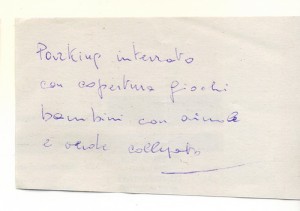 Parking interrato
con copertura giochi
bambini con
e verde collegato